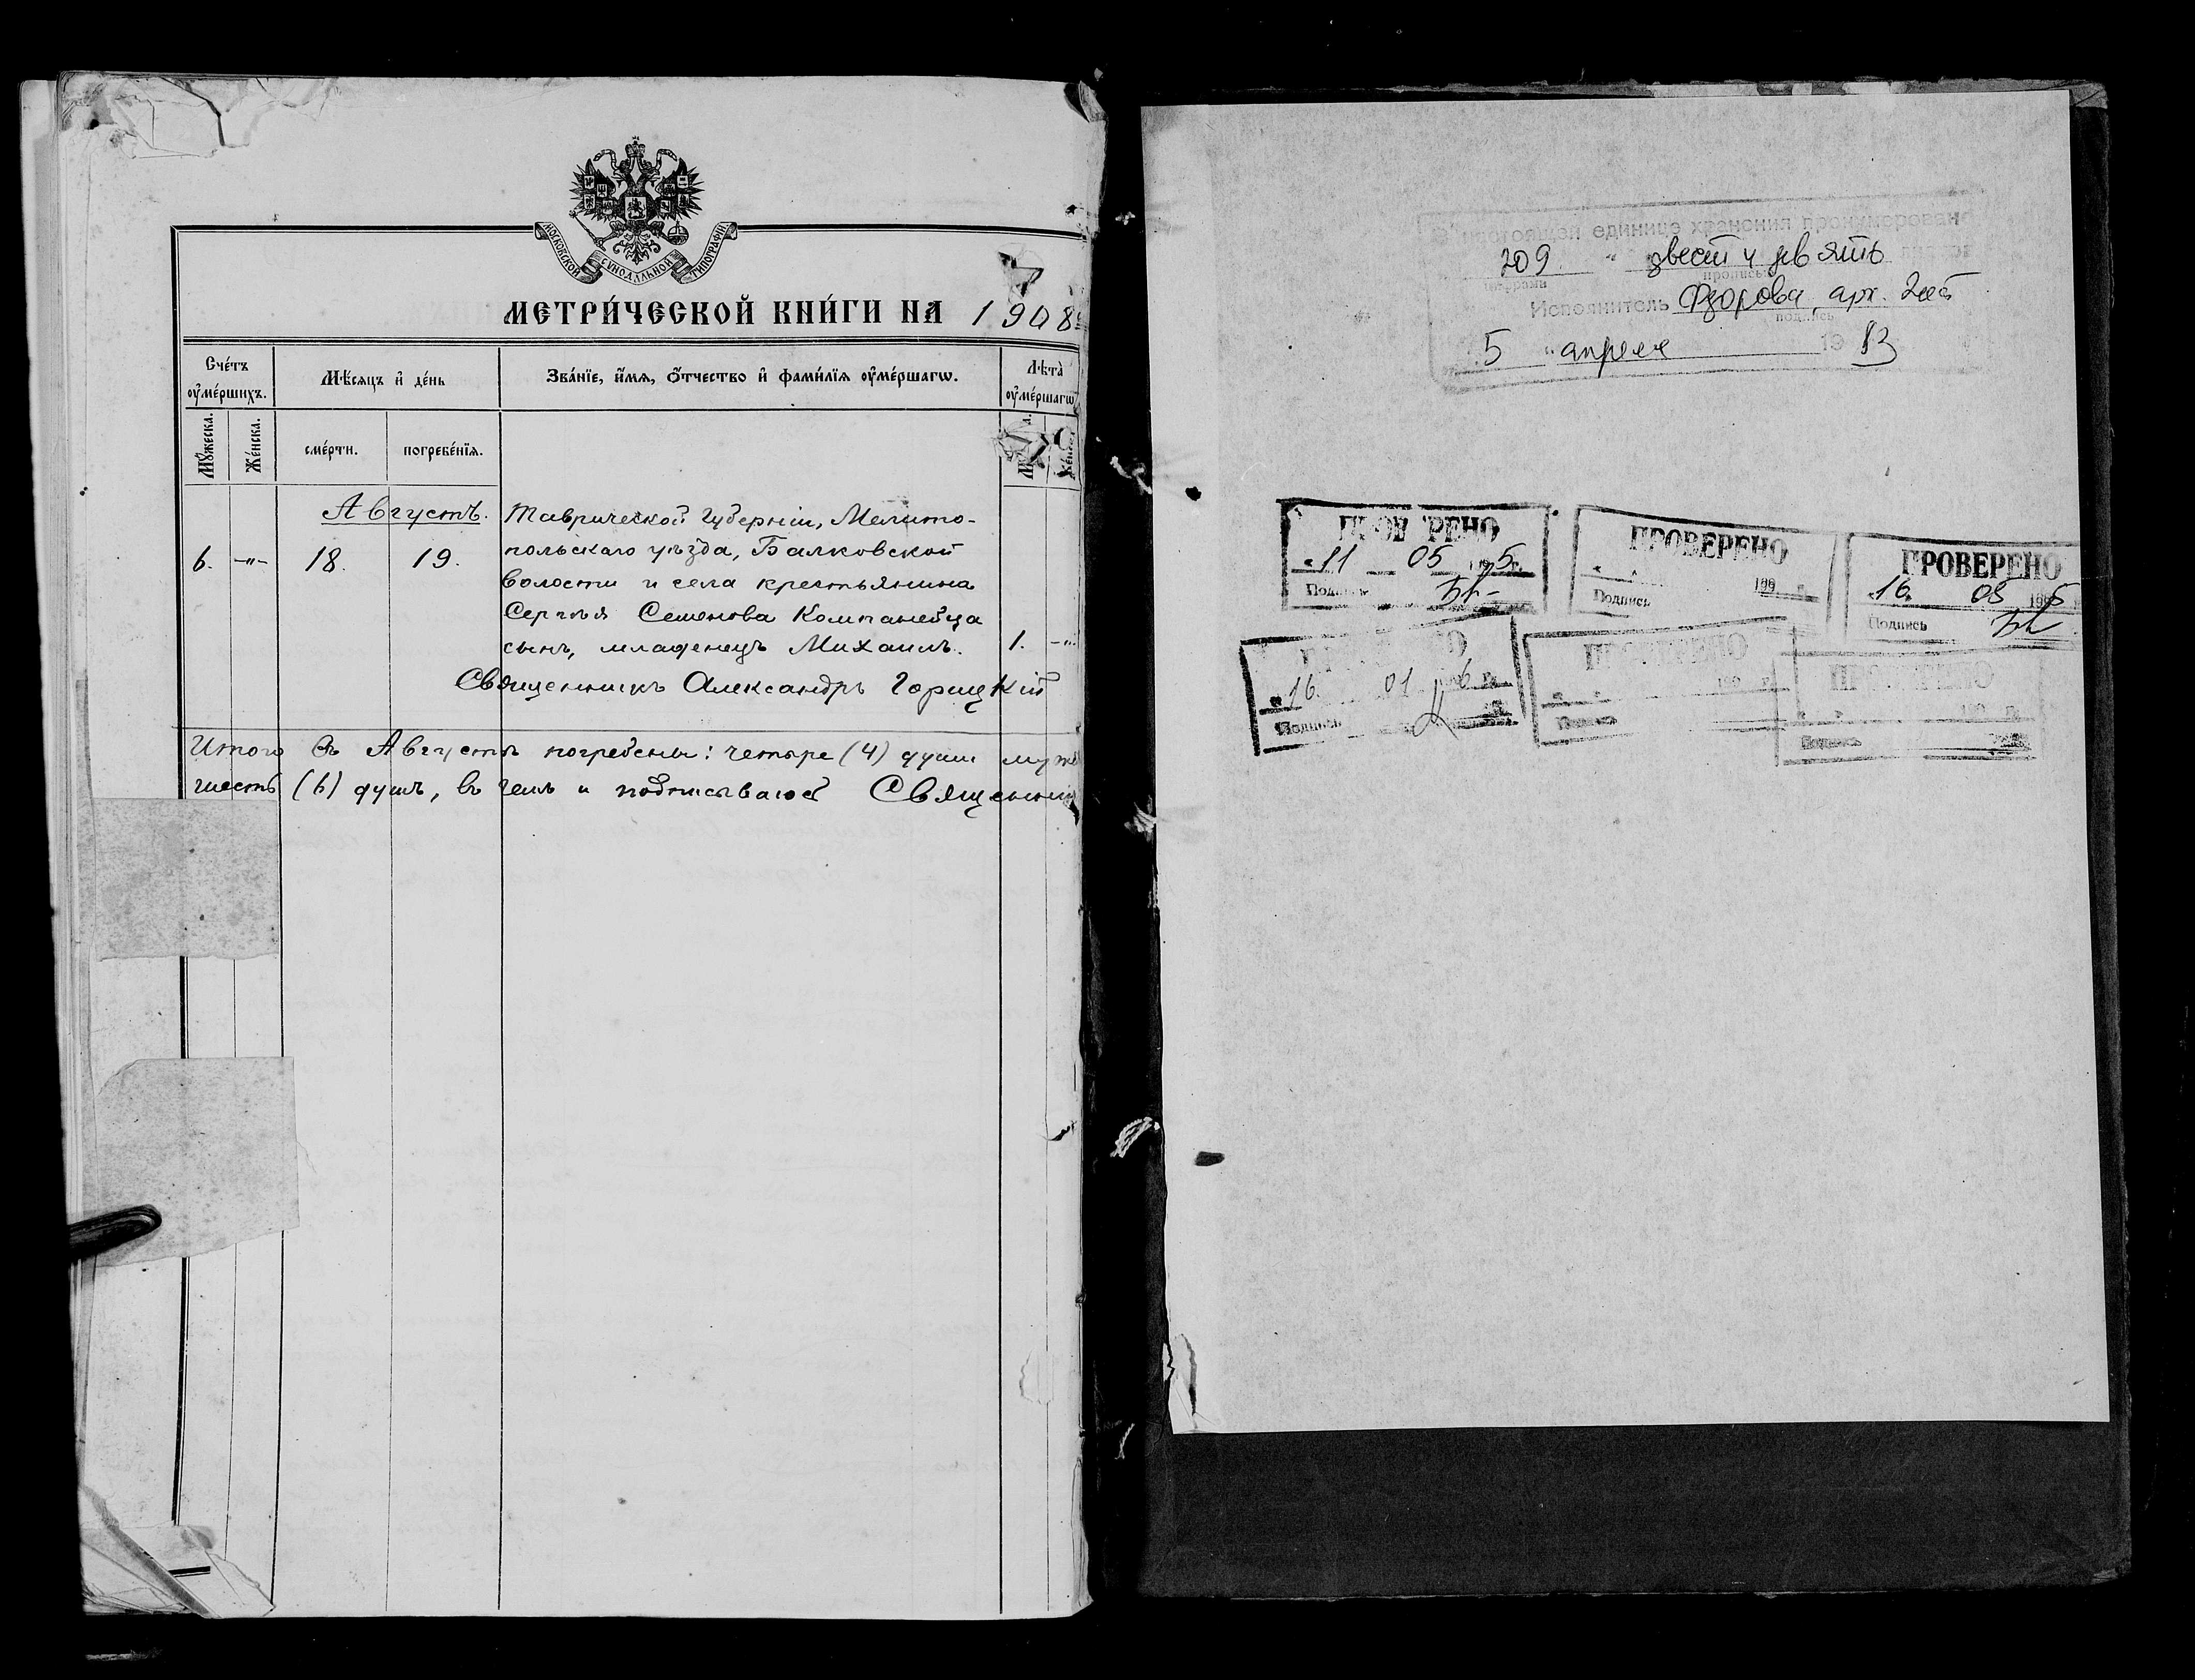 МОСКОВСКОЙ СѴНОДАЛЬНОЙ ТИПОГРАФІИ
МЕТРИ́ЧЕСКОЙ КНИ́ГИ НА 1908
Сче́тъ оу҆ме́ршихъ.
Мѣ́сяцъ и҆ де́нь
Зва́нїе, и҆́мѧ, ѻ҆́тчество и҆ фами́лїѧ оу҆ме́ршагѡ.
Лѣ̀та̀ оу҆ме́ршагѡ
Мꙋ́жеска.
Же́нска.
сме́рти.
погребе́нїѧ.
Августъ.
6. -"- 18. 19.
Таврической губерніи, Мелито-
польскаго уѣзда, Балковской
волости и села крестьянина
Сергѣя Семенова Компанейца
сынъ, младенецъ Михаилъ. 1. -"-
Священникъ Александръ Горицкій
Итого въ Августѣ погребены: четыре (4) души муж
шесть (6) душъ, въ чемъ и подписываюсь Священни
В настоящей единице хранения пронумеровано
209 двести девять
прописью
Исполнитель Фёдорова, арх.
подпись
5 апреля 1983
ПРОВЕРЕНО
"11 05 1995г.
Подпись
ПРОВЕРЕНО
199 г.
Подпись
ПРОВЕРЕНО
"16 05 1995
Подпись
ПРОВЕРЕНО
"16 01 6 г.
Подпись
ПРОВЕРЕНО
199 г.
Подпись
ПРОВЕРЕНО
199 г.
Подпись